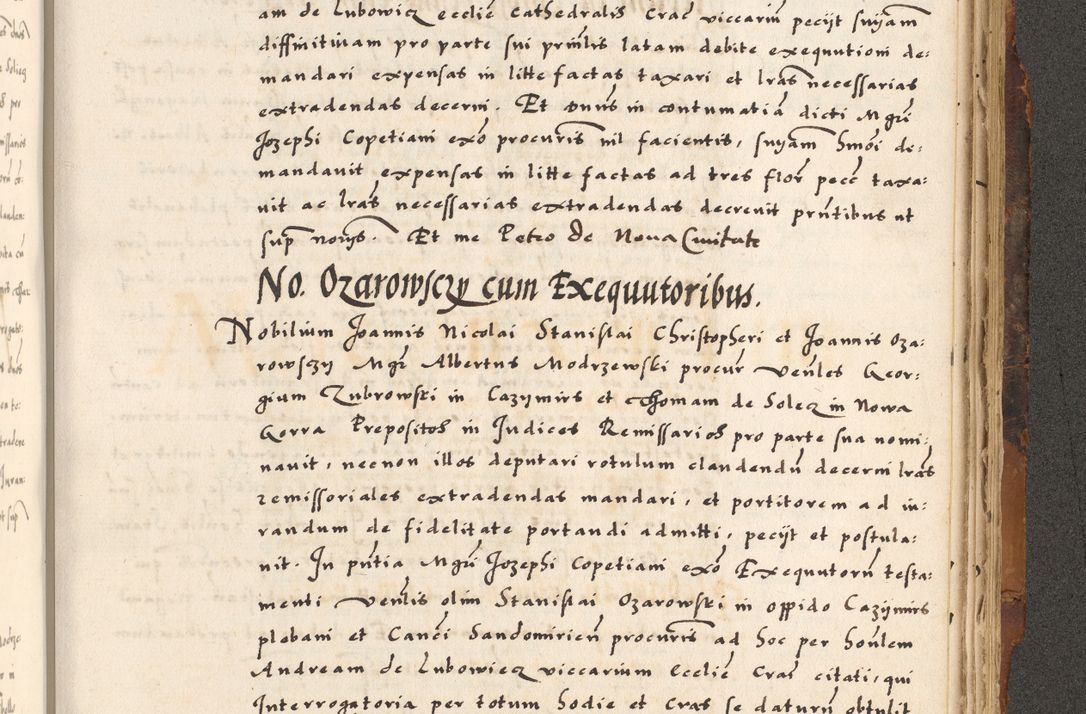 am de Lubowicz ecclie Cathedralis Crac viccarin pecijt snÿam
diffinitivam pro parte sui prinlis latam debite exequutioni de:
mandari expensas in litte factas taxari et lras necessarias
extradendas decerni. Et dnus in contumatia dicti Mgri
Jozephi Copetiani exo procuris nil facientis, snÿam hmoi de:
mandavit expensas in litte factas ad tres flor pecc taxa:
vit ac lras necessarias extradendas decrevit prntibus ut
sup noriis. Et me Petro de Nova Civitate
No. Ozarowsczy cum Exequutoribus.
Nobilium Joannis Nicolai Stanislai Christopheri et Joannis Oza:
rowsczy Mgr Albertus Modrzewski procur venles Geor:
gium Zubrowski in Cazymirs et Thomam de Solecz in Nowa
Gorra Prepositos in Judices Remissarios pro parte sua nomi:
navit, necnon illos deputari rotulum claudendu decerni lras
remissoriales extradendas mandari, et portitorem ad iu:
randum de fidelitate portandi admitti, pecijt et postula:
vit. In pntia Mgri Jozephi Copetiani exo Exequutoru testa:
menti venlis olim Stanislai Ozarowski in oppido Cazijmirs
plebani et Canci Sandomirien procuris ad hoc per honlem
Andream de Lubowiecz viccarium Ecclie Crac citati, qui
Interrogatoria per totum hodie et cras se daturu obtulit